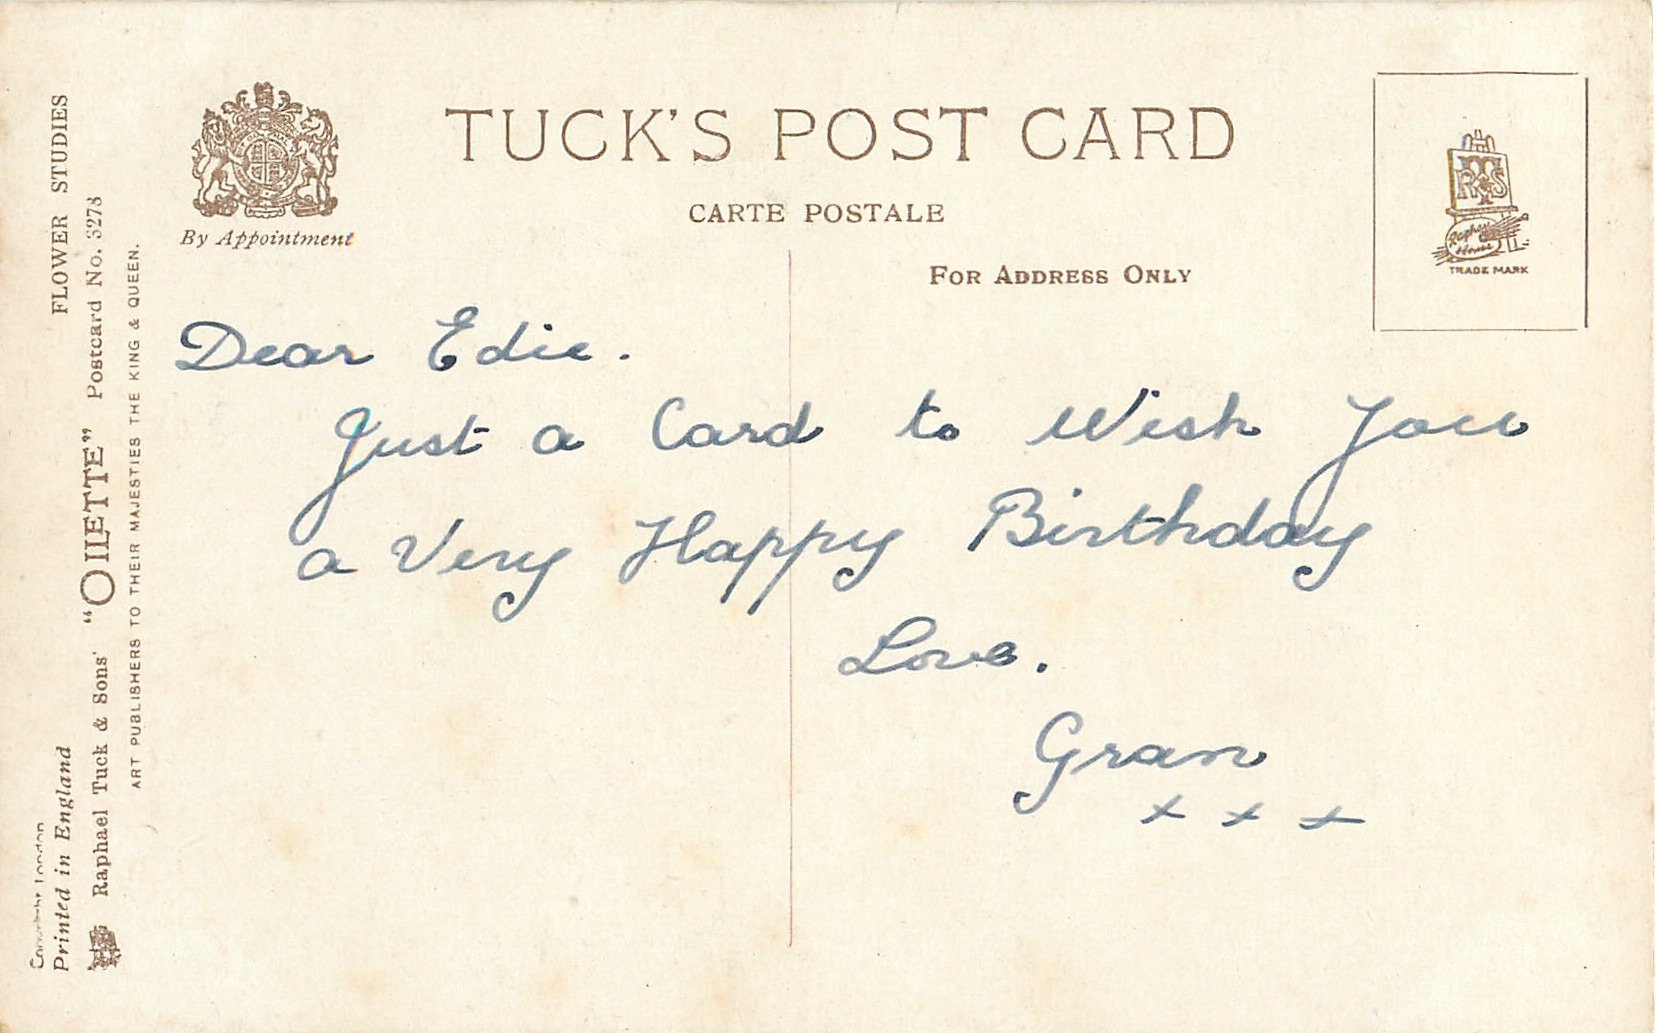 TUCK'S POST CARD
CARTE POSTALE
By Appointment
FOR ADDRESS ONLY
RTS
Raphael House
TRADE MARK
FLOWER STUDIES
Printed in England
Raphael Tuck & Sons' "OILETTE" Postcard No.
ART PUBLISHERS TO THEIR MAJESTIES THE KING & QUEEN.
Dear Edie.
Just a Card to Wish You
a Very Happy Birthday
Love.
Gran
x x x